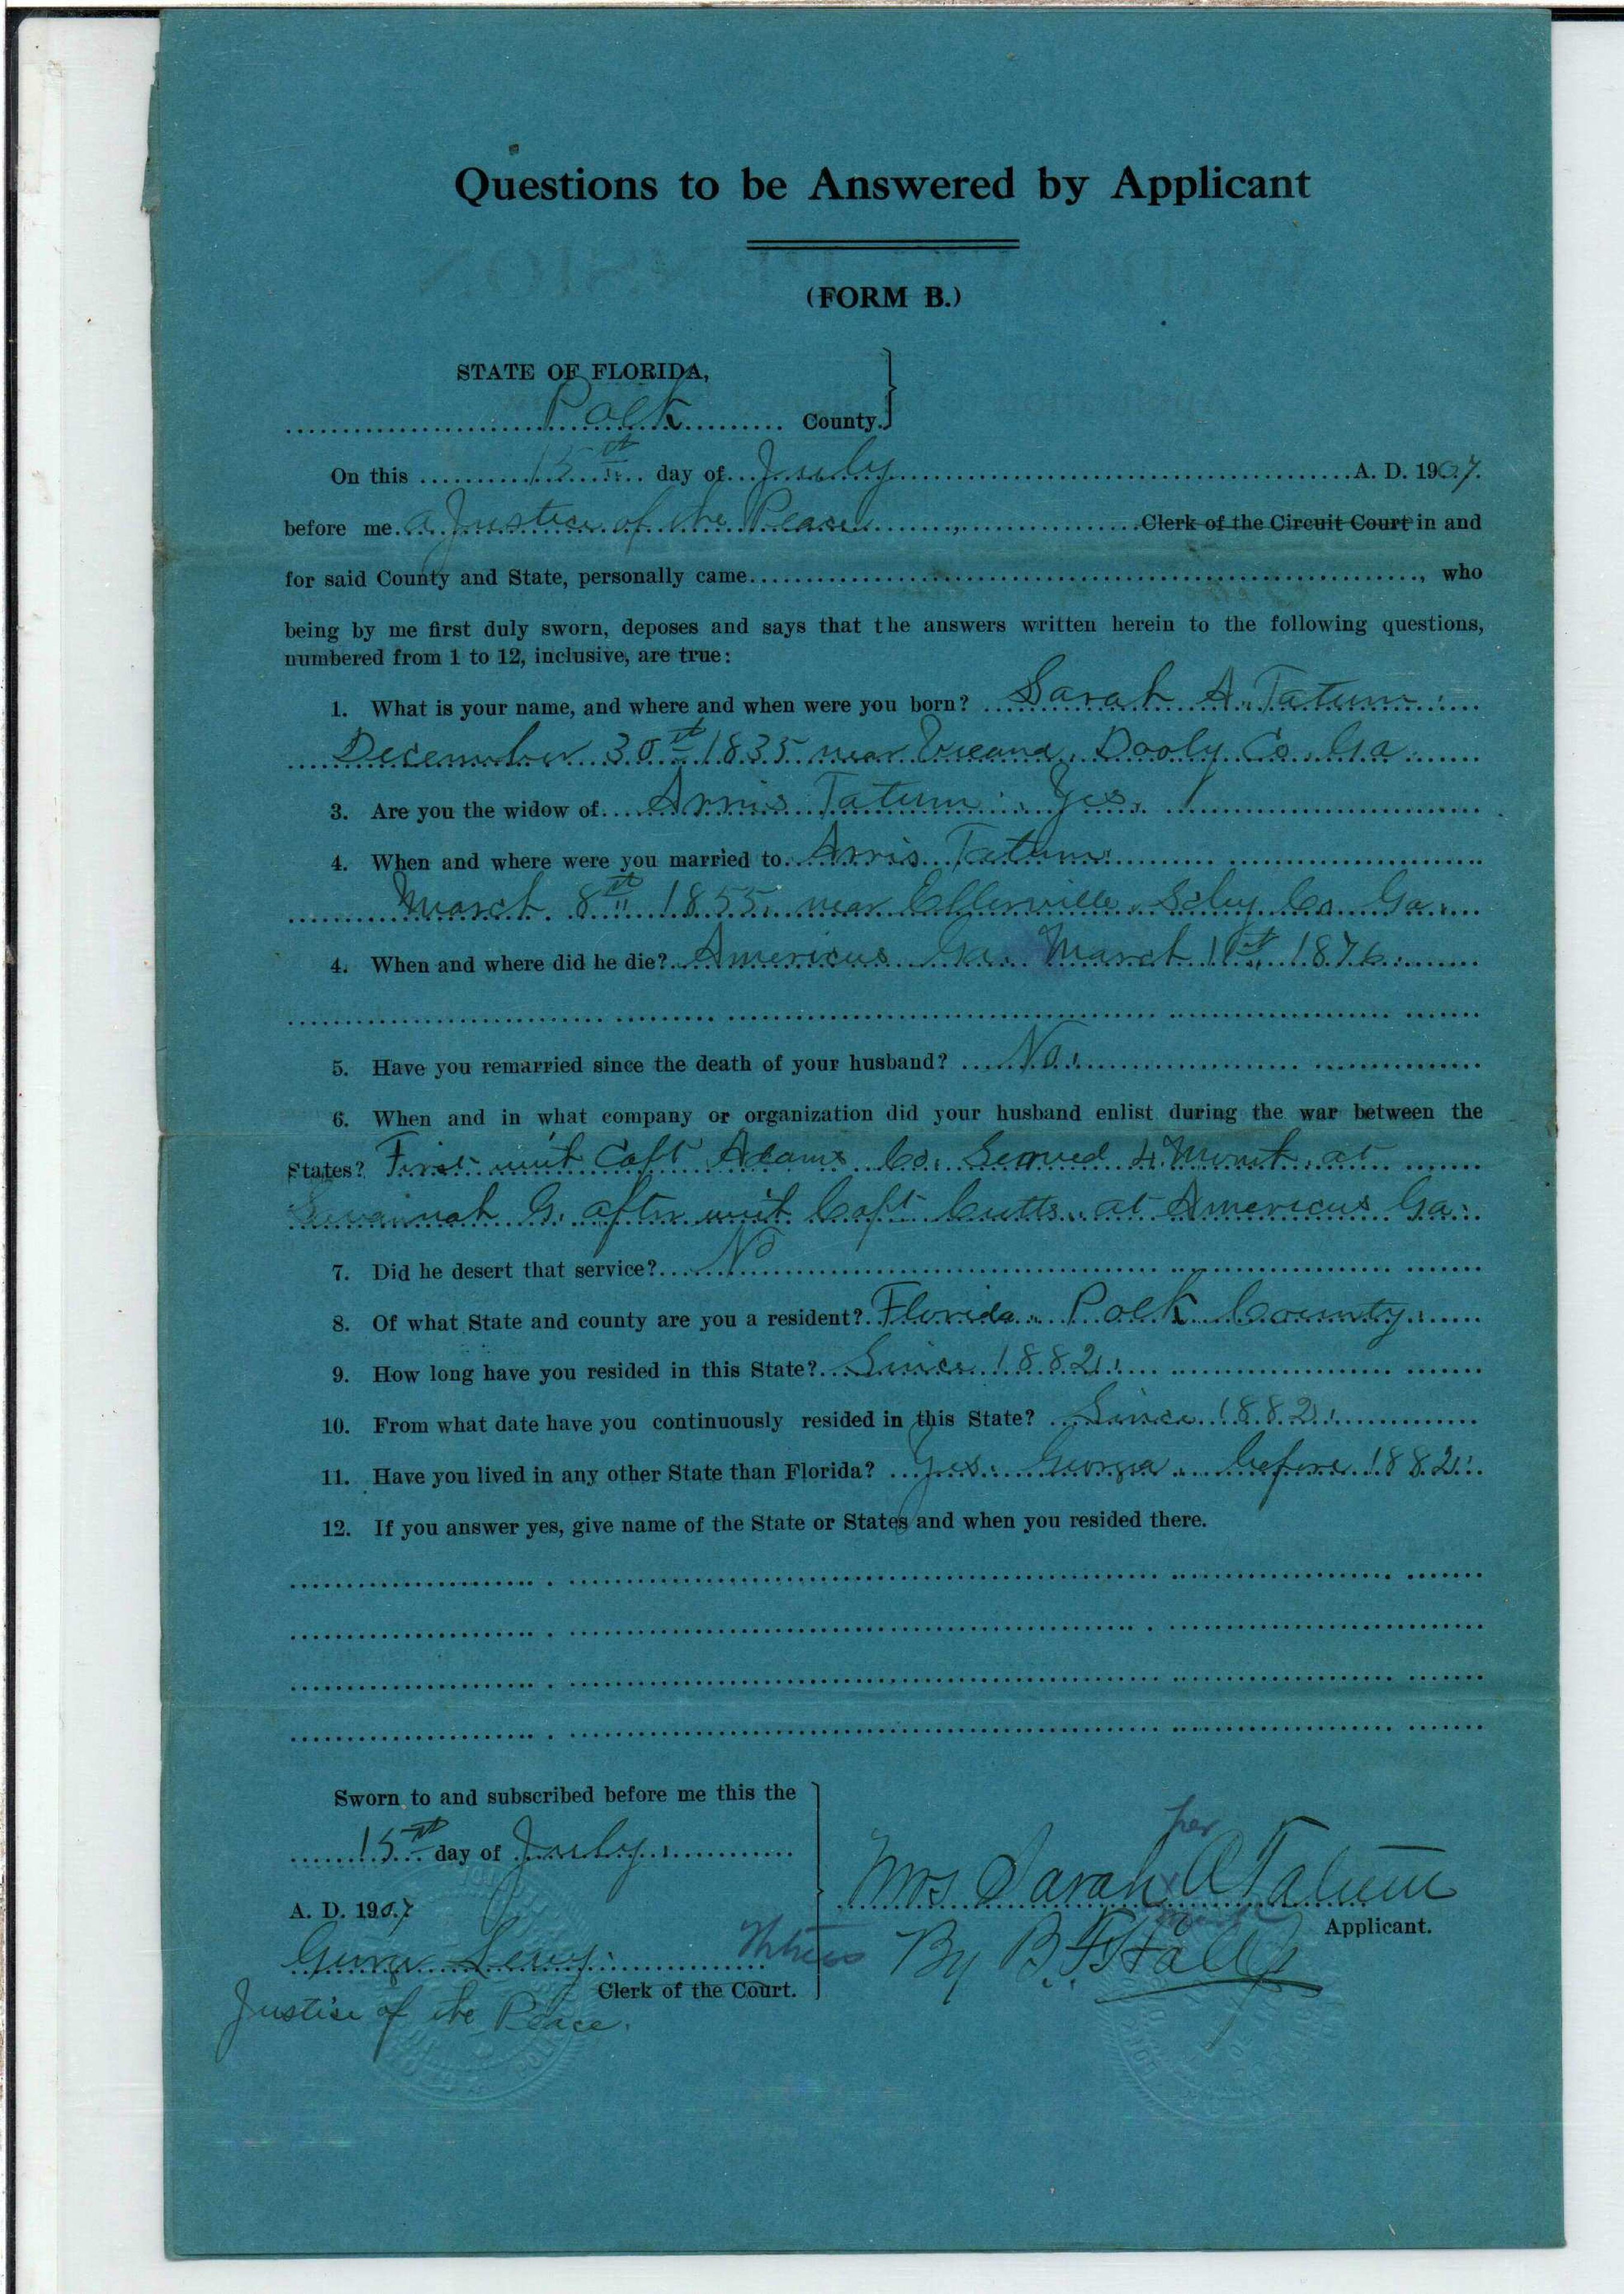 Questions to be Answered by Applicant
(FORM B.)
STATE OF FLORIDA,
Polk County.
On this 15th day of July A. D. 1907.
before me a Justice of the Peace, Clerk of the Circuit Court in and
for said County and State, personally came, who
being by me first duly sworn, deposes and says that the answers written herein to the following questions,
numbered from 1 to 12, inclusive, are true:
1. What is your name, and where and when were you born? Sarah A. Tatum.
December 30th 1835 near Dooly Co. Ga.
3. Are you the widow of Arris Tatum. Yes.
4. When and where were you married to Arris Tatum
March 8th 1855. near Ellerville Schy Co. Ga.
4. When and where did he die? Americus Ga. March 1st 1876.
5. Have you remarried since the death of your husband? No.
6. When and in what company or organization did your husband enlist during the war between the
States? First with Capt Adams Co. Served 4 Mont. at
Savannah G. after wit Capt Cutts. at Americus Ga.
7. Did he desert that service? No
8. Of what State and county are you a resident? Florida. Polk County.
9. How long have you resided in this State? Since 1882.
10. From what date have you continuously resided in this State? Since 1882.
11. Have you lived in any other State than Florida? Yes. Georgia before 1882.
12. If you answer yes, give name of the State or States and when you resided there.
Sworn to and subscribed before me this the
15th day of July.
A. D. 1907
her
Mrs Sarah A Tatum
mark
Applicant.
Witness By B. F.
Clerk of the Court.
Justice of the Peace.